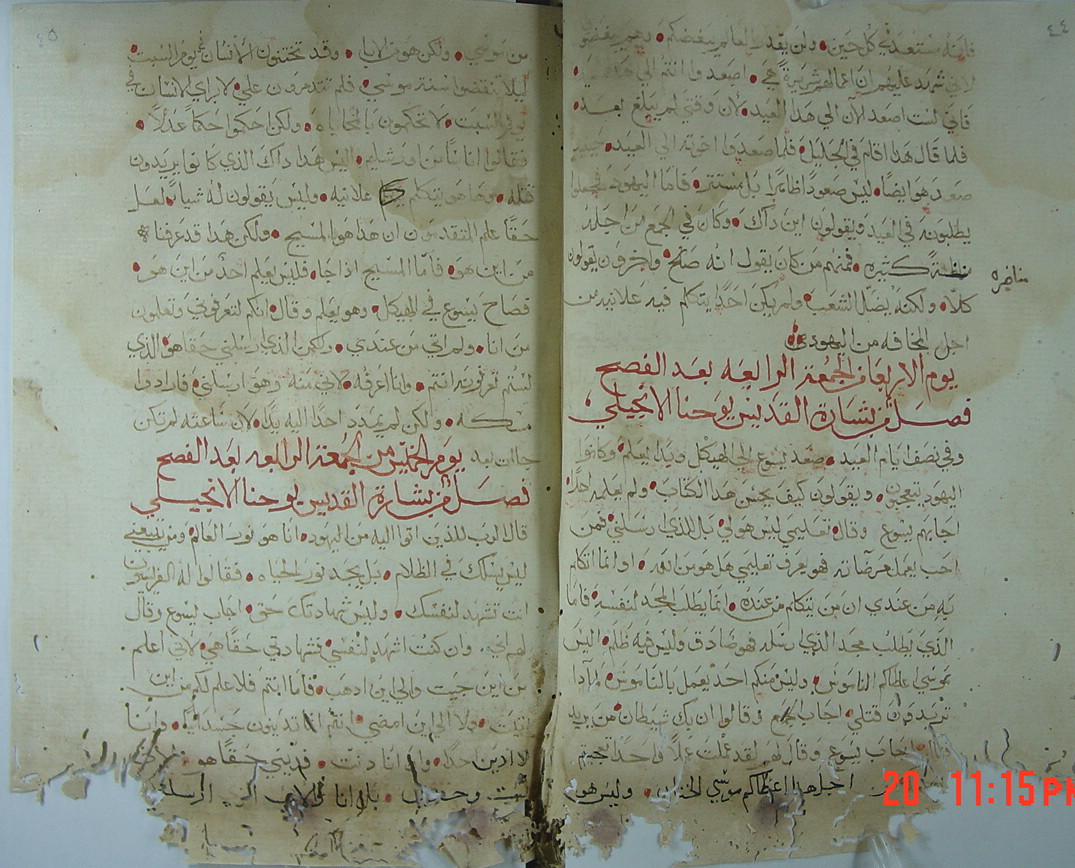 ٤٤
فانه مستعد في كل حين • ولن يقدر العالم يبغضكم • وهو يبغضني
لاني شهدت عليهم ان اعمالهم شريرة هي • اصعدوا انتم الي هذا العيد •
فاني لست اصعد الان الي هذا العيد • لان وقتي لم يبلغ بعد •
فلما قال هذا اقام في الجليل • فلما صعدوا اخوته الي العيد • حينيد
صعد هو ايضا • ليس صعودا ظاهرا بل مستتر • فاما اليهود فجعلوا
يطلبونه في العيد ويقولون اين داك • وكان في الجمع من اجله
كثيره • فمنهم من كان يقول انه صالح • واخرون يقولون
مناضره
كلا • ولكنه يضل الشعب • ولم يكن احدا يتكلم فيه علانيه من
اجل المخافه من اليهود •
يوم الاربعا من الجمعة الرابعه بعد الفصح
فصل من بشارة القديس يوحنا الانجيلي
وفي نصف ايام العيد • صعد يسوع الي الهيكل وبدا يعلم • وكانوا
اليهود يتعجبون • ويقولون كيف يحسن هدا الكتاب • ولم يعلمه احدا
اجابهم يسوع • وقال تعليمي ليس هو لي بل للدي ارسلني • فمن
احب يعمل مرضاته فهو يعرف تعليمي هل هو من الله • او انما اتكلم
به من عندي ان من يتكلم من عنده • انما يطلب المجد لنفسه • فاما
الدي يطلب مجد الدي ارسله فهو صادق وليس فيه ظلم • اليس
موسي اعطاكم الناموس • وليس منكم احد يعمل بالناموس • لمادا
تريدون قتلي • اجاب الجمع وقالوا ان بك شيطان • من يريد
اجاب يسوع وقال لهم لقد عملت عملا واحدا تعجبتم
اجل هدا اعطاكم موسي الختان • وليس هو
٤٥
من موسي • ولكن هو من الابا • وقد تختنون الانسان في يوم السبت
ليلا تنقضوا سنة موسي • فلم تتدمرون علي • لابراي الانسان في
يوم السبت • لا تحكموا بالمحاباه • ولكن احكموا حكما عدلا •
فقالوا اناسا من اورشليم • اليس هدا داك الدي كانوا يريدون
قتله • وها هو يتكلم علانيه • وليس يقولون له شيا • لعل
حقا علم المتقدمون ان هدا هو المسيح • ولكن هدا قد عرفنا
من اين هو • فاما المسيح ادا جا • فليس يعلم احد من اين هو •
فصاح يسوع في الهيكل • وهو يعلم وقال • انكم لتعرفوني وتعلمون
من انا • ولم اتي من عندي • ولكن الدي ارسلني حقا هو الدي
لستم تعرفونه انتم • وانا اعرفه • لاني منه وهو ارسلني • فارادوا
مسكه • ولكن لم يمدد احدا اليه يدا • لان ساعته لم تكن
جاات بعد
يوم الخميس من الجمعة الرابعه بعد الفصح
فصل من بشارة القديس يوحنا الانجيلي
قال الرب للذين اتوا اليه من اليهود • انا هو نور العالم • ومن يتبعني
ليس يسلك في الظلام • بل يجد نور الحياه • فقالوا له الفريسيون
انت تشهد لنفسك • وليس شهادتك حق • اجاب يسوع وقال
لهم اني وان كنت اشهد لنفسي • فشهادتي حقا هي • لاني اعلم
من اين جيت والي اين ادهب • فاما انتم فلا علم لكم من اين
اتيت • ولا الي اين امضي • انتم تدينون جسدانيا • وانا
لا ادين احدا • وان انا دنت • فديني حقا هو
لست وحدي • بل انا والاب الدي ارسلني
20 11:15 PM